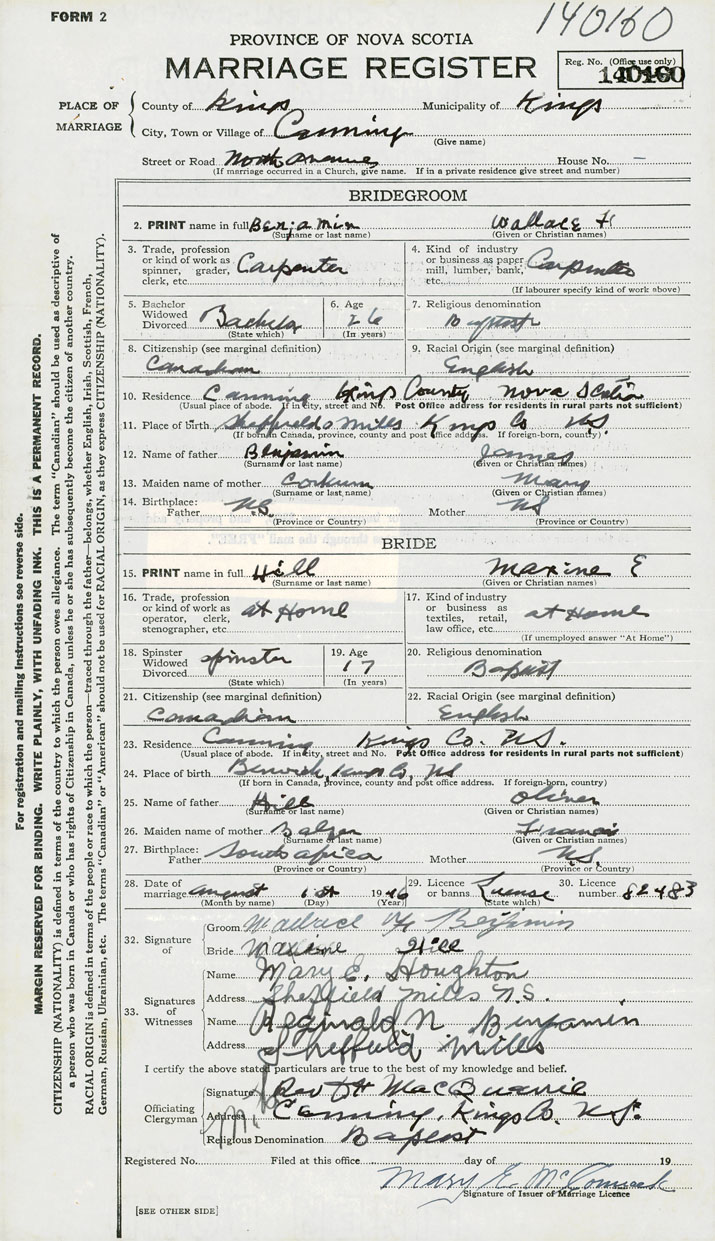 FORM 2
140160
PROVINCE OF NOVA SCOTIA
MARRIAGE REGISTER
Reg. No. (Office use only)
140160
PLACE OF MARRIAGE
County of Kings Municipality of Kings
City, Town or Village of Canning
(Give name)
Street or Road North Avenue House No. —
(If marriage occurred in a Church, give name. If in a private residence give street and number)
BRIDEGROOM
2. PRINT name in full Benjamin Wallace H
(Surname or last name) (Given or Christian names)
3. Trade, profession or kind of work as spinner, grader, clerk, etc. Carpenter
4. Kind of industry or business as paper mill, lumber, bank, etc. Carpenter
(If labourer specify kind of work above)
5. Bachelor Widowed Divorced Bachelor
(State which)
6. Age 26
(In years)
7. Religious denomination Baptist
8. Citizenship (see marginal definition) Canadian
9. Racial Origin (see marginal definition) English
10. Residence Canning Kings County Nova Scotia
(Usual place of abode. If in city, street and No. Post Office address for residents in rural parts not sufficient)
11. Place of birth Sheffields Mills Kings Co NS.
(If born in Canada, province, county and post office address. If foreign-born, country)
12. Name of father Benjamin James
(Surname or last name) (Given or Christian names)
13. Maiden name of mother Corkum Mary
(Surname or last name) (Given or Christian names)
14. Birthplace: Father NS. Mother NS
(Province or Country) (Province or Country)
BRIDE
15. PRINT name in full Hill Maxine E
(Surname or last name) (Given or Christian names)
16. Trade, profession or kind of work as operator, clerk, stenographer, etc. at Home
17. Kind of industry or business as textiles, retail, law office, etc. at Home
(If unemployed answer "At Home")
18. Spinster Widowed Divorced spinster
(State which)
19. Age 17
(In years)
20. Religious denomination Baptist
21. Citizenship (see marginal definition) Canadian
22. Racial Origin (see marginal definition) English
23. Residence Canning Kings Co. NS.
(Usual place of abode. If in city, street and No. Post Office address for residents in rural parts not sufficient)
24. Place of birth Berwick, Kings Co, NS
(If born in Canada, province, county and post office address. If foreign-born, country)
25. Name of father Hill Oliver
(Surname or last name) (Given or Christian names)
26. Maiden name of mother Balzer Francis
(Surname or last name) (Given or Christian names)
27. Birthplace: Father South africa Mother NS.
(Province or Country) (Province or Country)
28. Date of marriage august 1st 1946
(Month by name) (Day) (Year)
29. Licence or banns License
(State which)
30. Licence number 82483
32. Signature of
Groom Wallace H Benjamin
Bride Maxine Hill
33. Signatures of Witnesses
Name Mary E. Houghton
Address Sheffield Mills N.S.
Name Reginald N. Benjamin
Address Sheffield Mills
I certify the above stated particulars are true to the best of my knowledge and belief.
Officiating Clergyman
Signature Rev D H MacQuarrie
Address Canning, Kings Co. N.S.
Religious Denomination Baptist
Registered No. Filed at this office day of 19
Mary E. McCormack
Signature of Issuer of Marriage Licence
[SEE OTHER SIDE]
For registration and mailing instructions see reverse side.
MARGIN RESERVED FOR BINDING. WRITE PLAINLY, WITH UNFADING INK. THIS IS A PERMANENT RECORD.
CITIZENSHIP (NATIONALITY) is defined in terms of the country to which the person owes allegiance. The term "Canadian" should be used as descriptive of
a person who was born in Canada or who has rights of Citizenship in Canada, unless he or she has subsequently become the citizen of another country.
RACIAL ORIGIN is defined in terms of the people or race to which the person—traced through the father—belongs, whether English, Irish, Scottish, French,
German, Russian, Ukrainian, etc. The terms "Canadian" or "American" should not be used for RACIAL ORIGIN, as they express CITIZENSHIP (NATIONALITY).